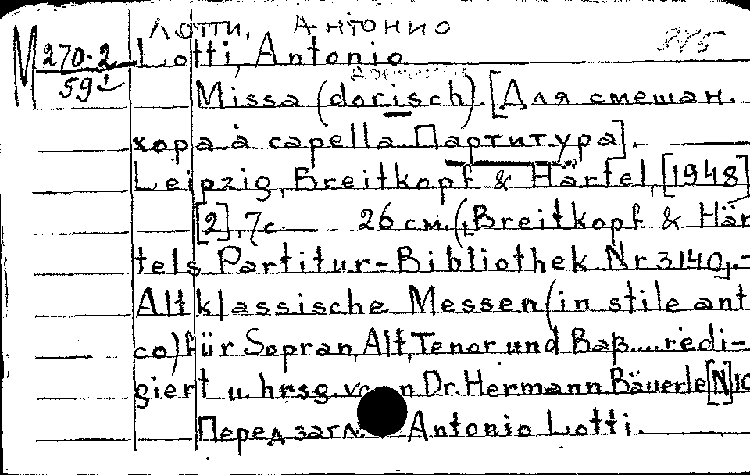 Лотти, Антонио
М 270-2
59
Lotti, Antonio
Missa (dorisch). [Для смешан.
хора a capella Партитура].
Leipzig, Breitkopf & Härtel, [1948]
[2], 7 с 26 см. (Breitkopf & Här
tels Partitur-Bibliothek Nr 3140,-
Altklassische Messen (in stile anti
co) für Sopran, Alt, Tenor und Baß.... redi-
giert u. hrsg. von Dr. Hermann Bäuerle [N] 10
Перед загл. Antonio Lotti.